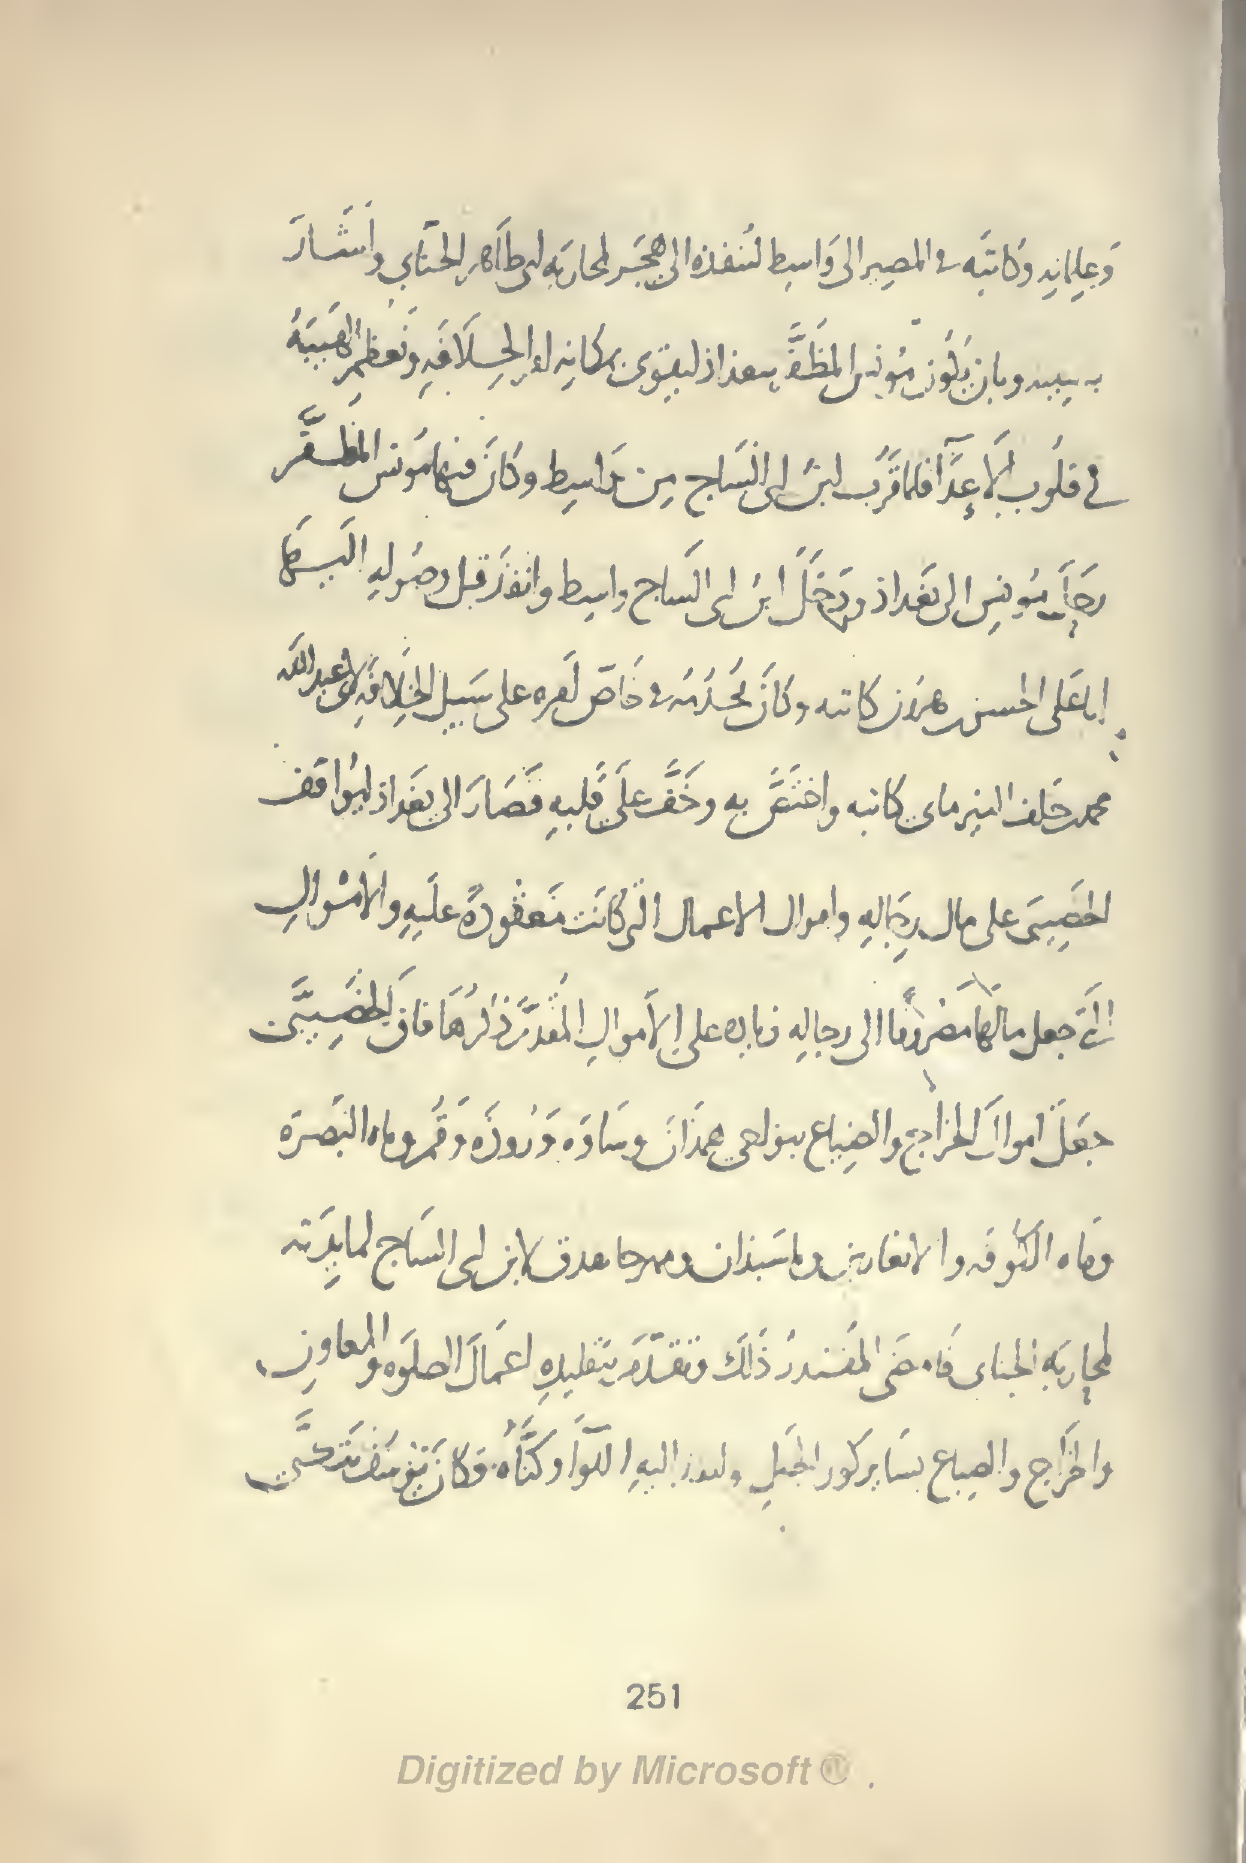 وغلمانه وكاتبه في المصير الى واسط لينفذه الى هجر لمحاربه ابي طاهر الجنابي واشار
به وبان يكون مونس المظفر ببغداذ ليقوى بمكانه امر الخلافه وتعظم الهيبه
في قلوب الاعدآ فلما قرب ابن ابي الساج من واسط وكان فيها مونس المظفر
رحل مونس الى بغداذ ودخل ابن ابي الساج واسط وانفذ قبل وصوله اليها
ابا على الحسن بن هرون كاتبه وكان يخدمه في خاص امره على سبيل الخلافه لابي عبد الله
محمد بن خلف النيرماني كاتبه واختص به وخف على قلبه فصار الى بغداذ ليواقف
الخصيبي على مال رجاله واموال الاعمال التي كانت معقوده عليه والاموال
التي جعل مالها مصروفا الى رجاله زياده على الاموال المقدم ذكرها فان الخصيبي
جعل اموال الخراج والضياع بنواحي همذان وساوه وروذه وقم وماه البصره
وماه الكوفه والايغارين وماسبذان ومهرجانقذق لابن ابي الساج لمايدته
لمحاربه الجنابي فامضى المقتدر ذلك وتقدم بتقليده اعمال الصلوه والمعاون
والخراج والضياع بساير كور الجبل اليه اللوآ وكناه وكان
251
Digitized by Microsoft ®